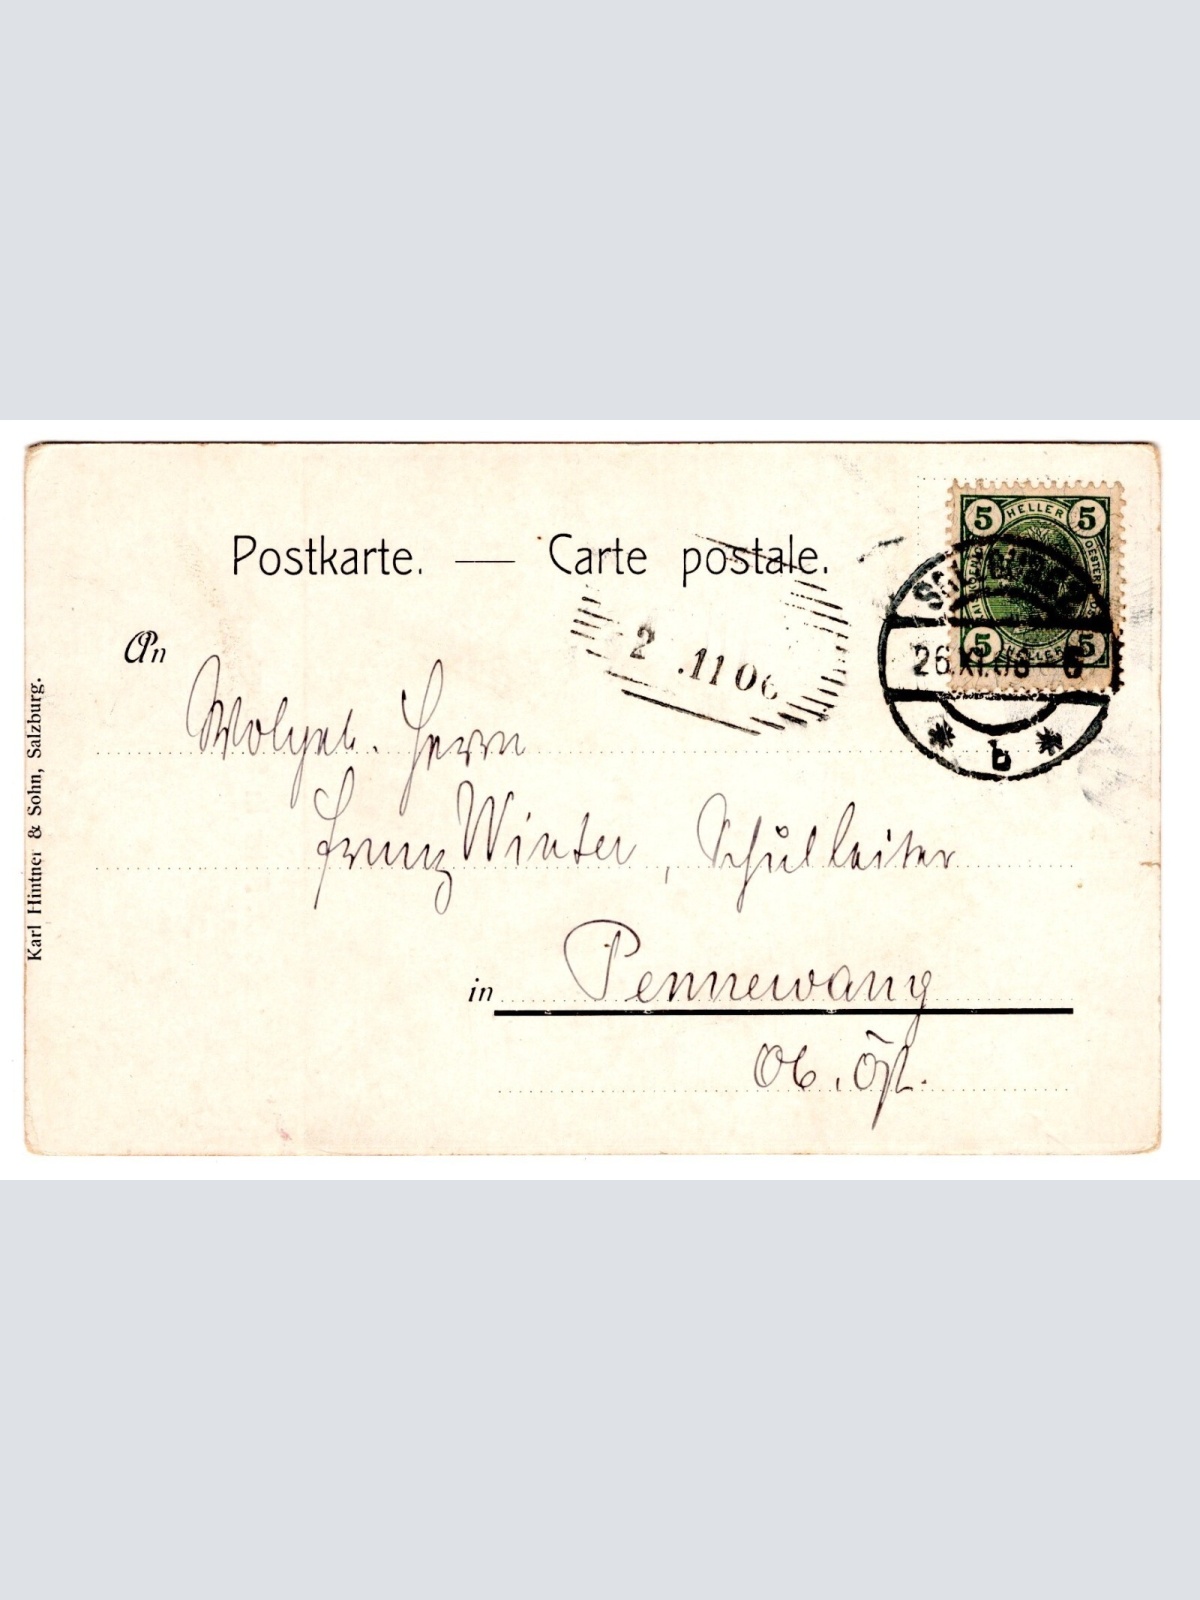 Postkarte. — Carte postale.
5 HELLER 5
5 HELLER 5
26.XI.06 6
* b *
2 .11 06
An
Wolgeb. Herrn
Franz Winter, Schulleiter
in Pennewang
Ob. Öst.
Karl Hintner & Sohn, Salzburg.